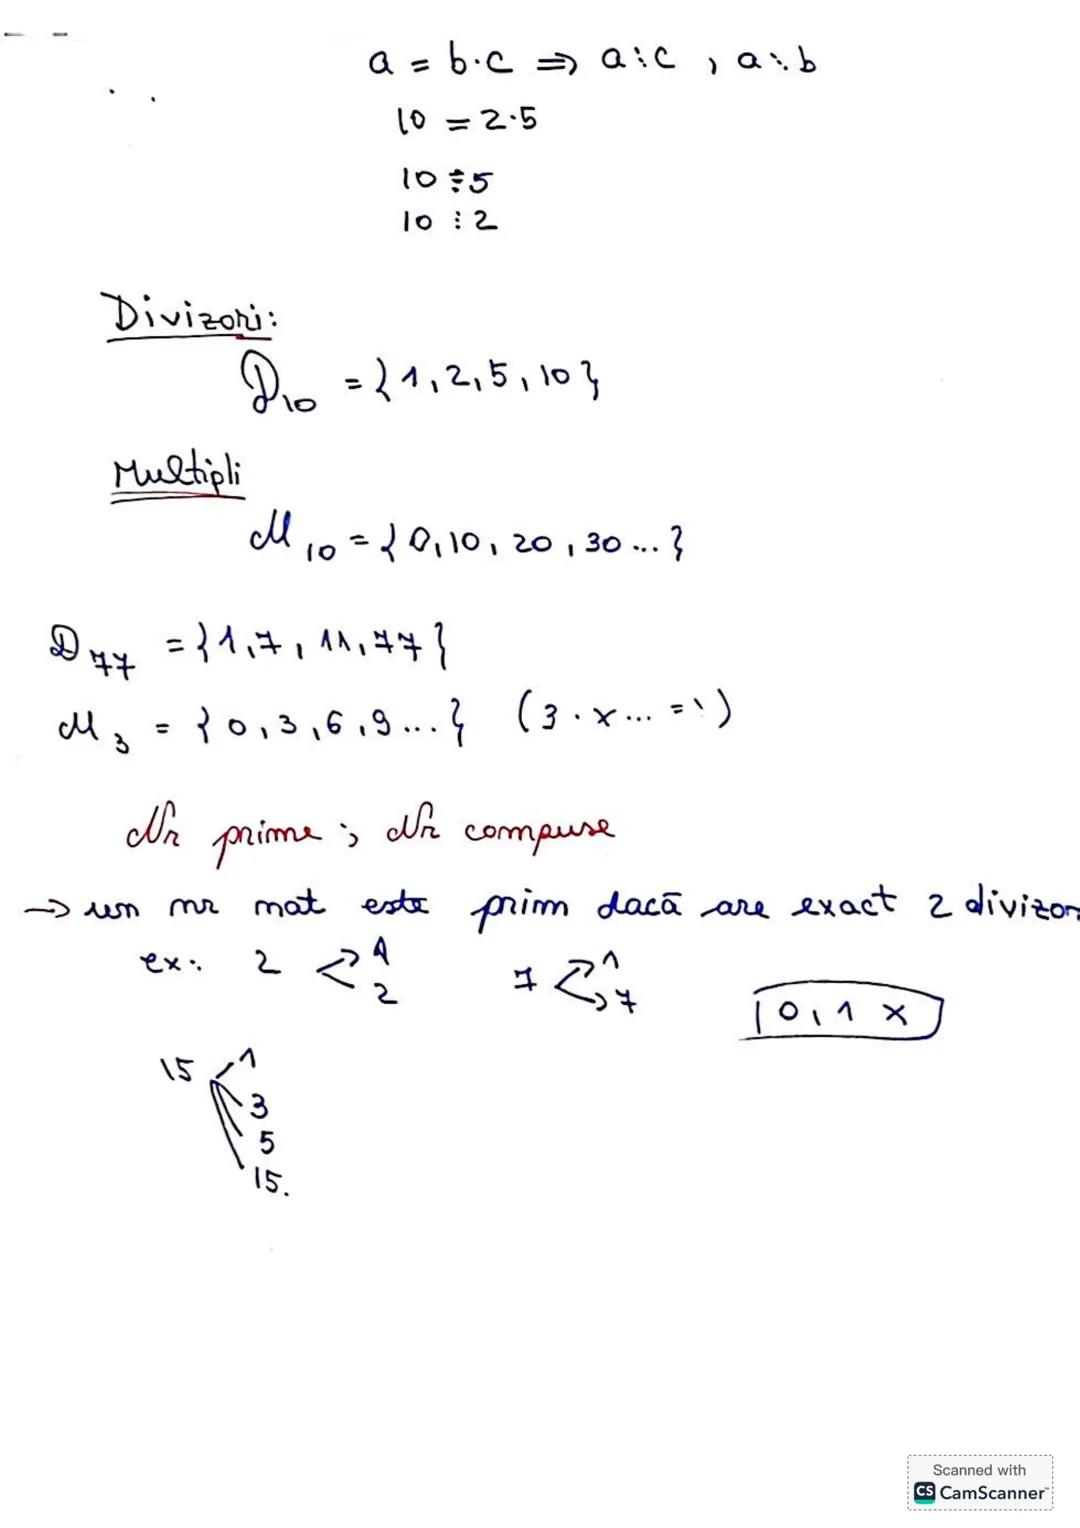 a = b·c ⇒ a⋮c , a⋮b
10 = 2·5
10 ⋮ 5
10 ⋮ 2
Divizori:
D₁₀ = {1,2,5,10}
Multipli
M₁₀ = {0,10,20,30...}
D₇₇ = {1,7,11,77}
M₃ = {0,3,6,9...} (3·x...=)
Nr prime ; Nr compuse
→ un nr nat este prim dacă are exact 2 divizor
ex: 2 < 1 7 < 1
2 7
0,1 x
15 1
3
5
15.
Scanned with
CS CamScanner